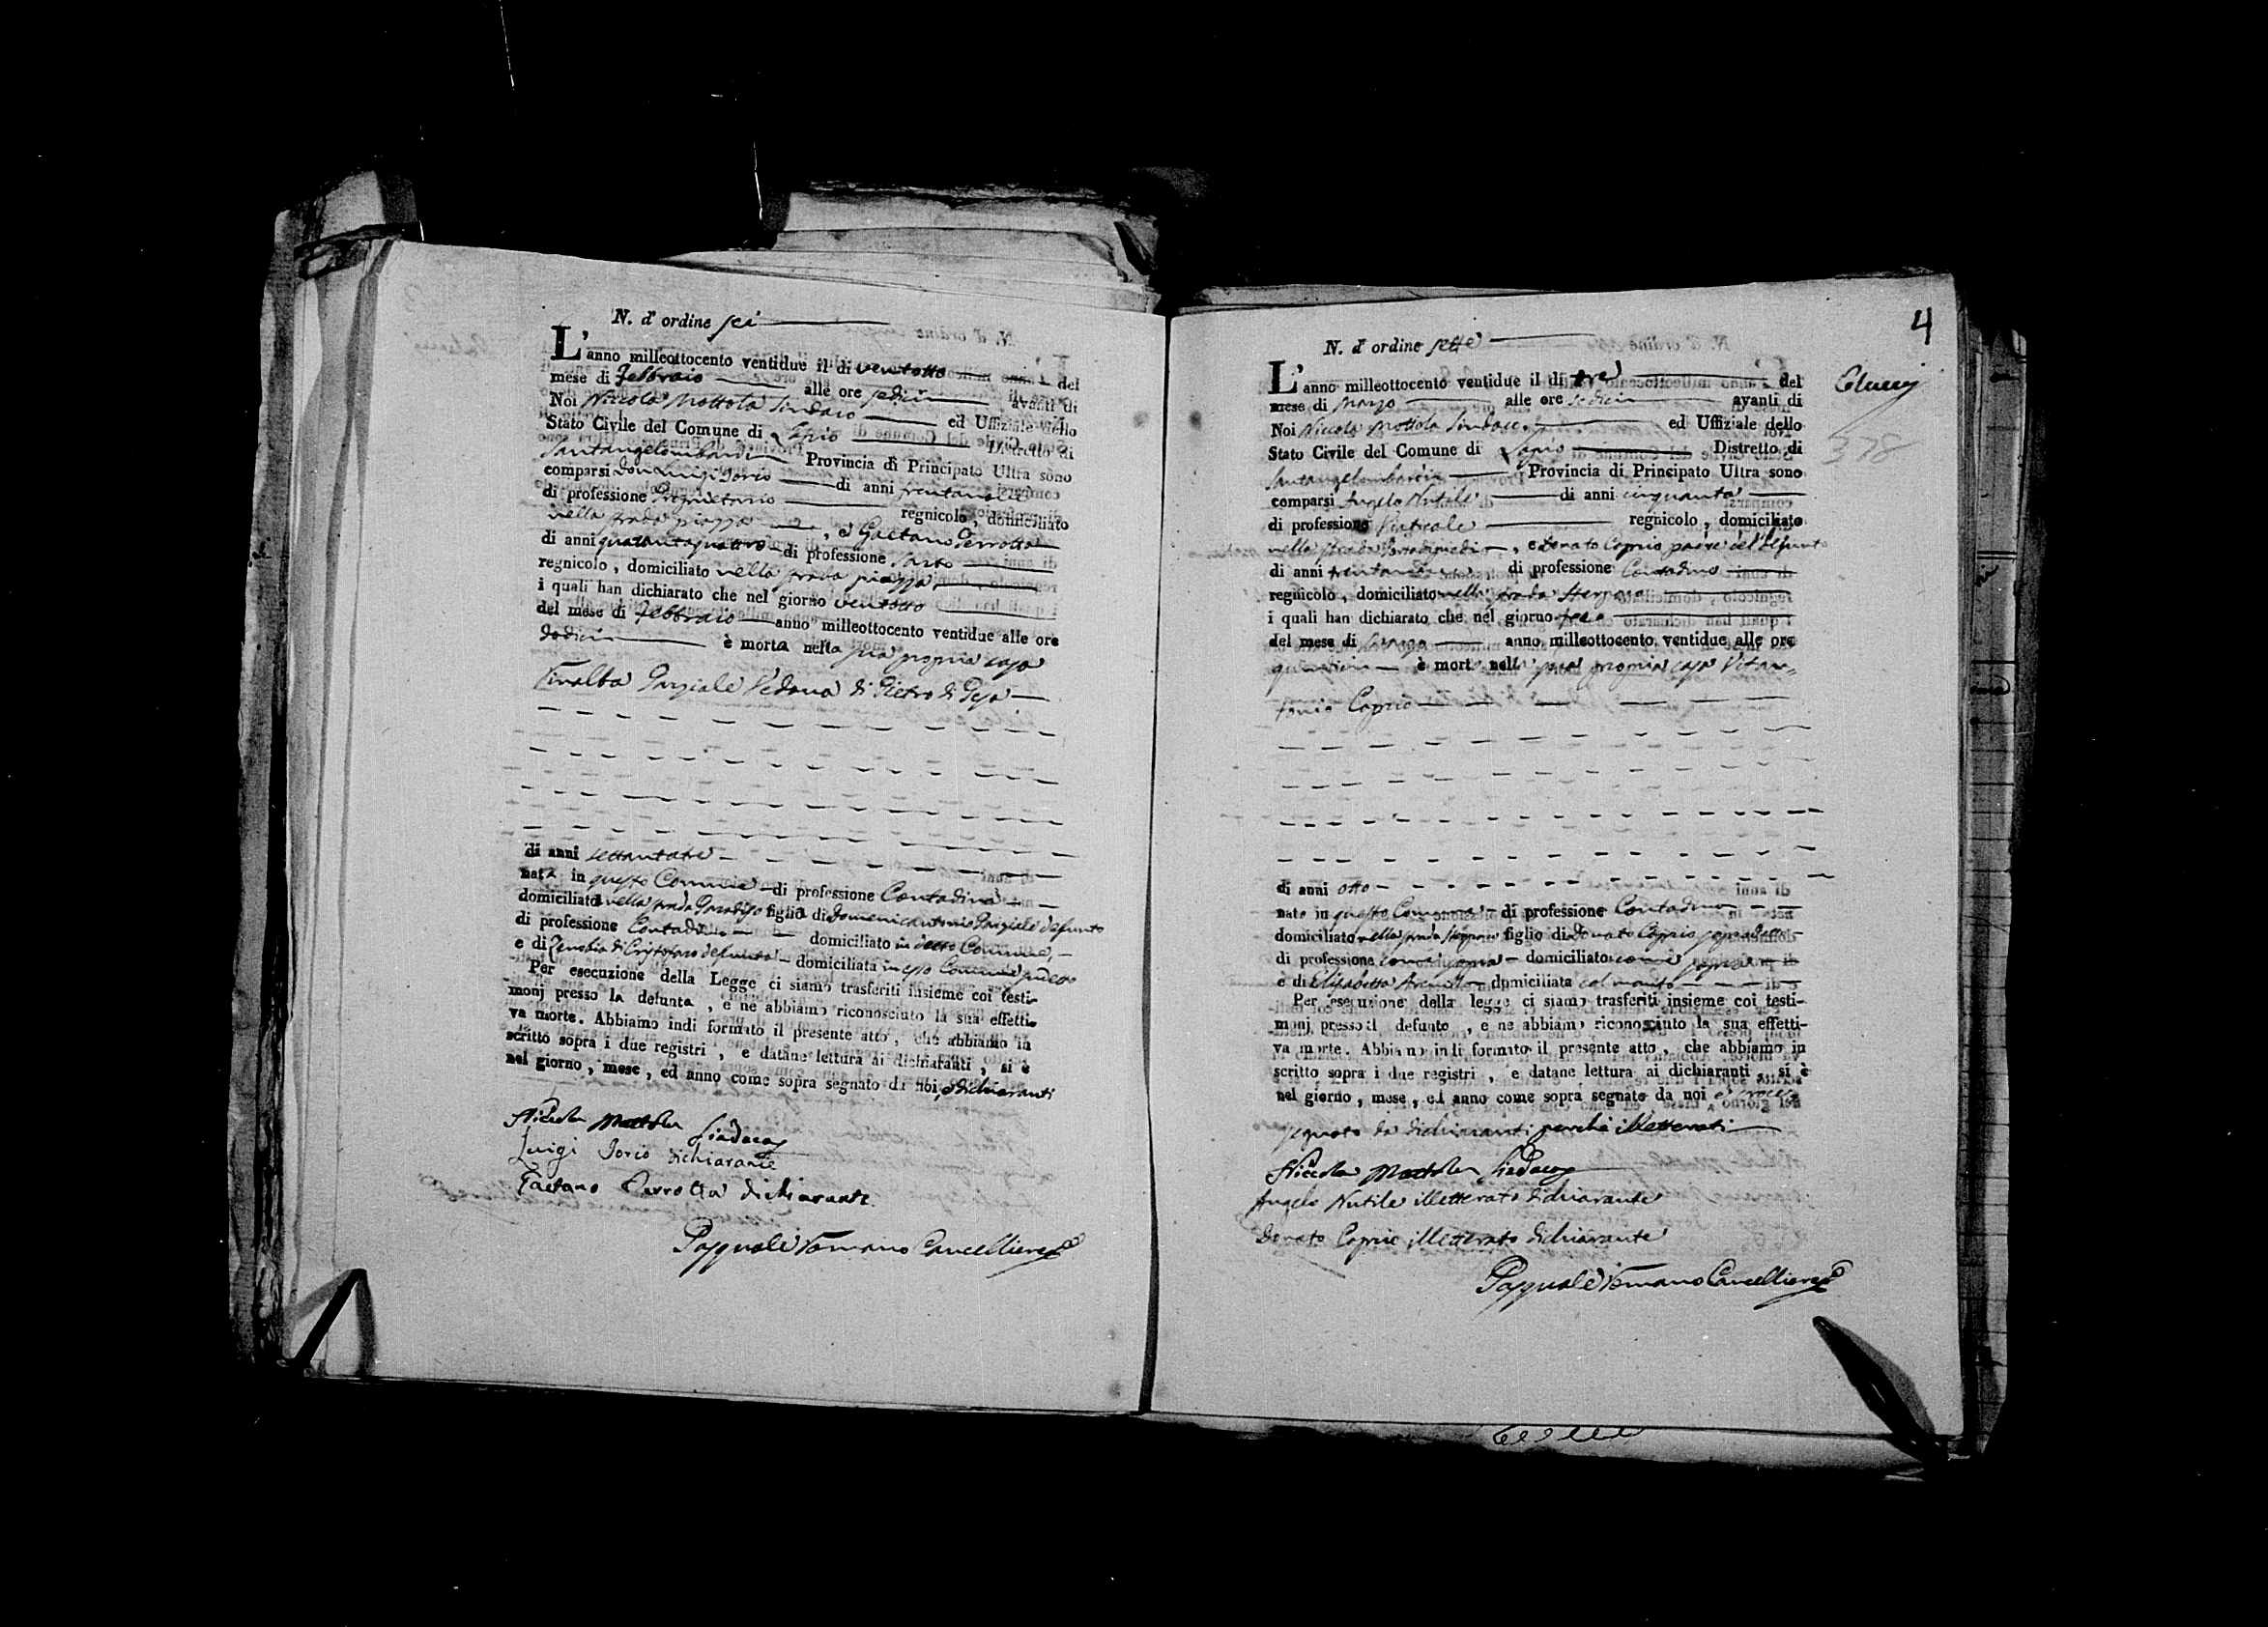 N. d' ordine sei
L'anno milleottocento ventidue il di ventotto del
mese di Febbraio alle ore sedici avanti di
Noi Niccola Mottola Sindaco ed Uffiziale dello
Stato Civile del Comune di Lapio Distretto di
Santangelombardi Provincia di Principato Ultra sono
comparsi Don Luigi Iorio di anni
di professione Proprietario regnicolo, domiciliato
nella strada piazza, e Gaetano Perrotta
di anni quarantaquattro di professione Sarto
regnicolo, domiciliato nella strada piazza
i quali han dichiarato che nel giorno ventotto
del mese di Febbraio anno milleottocento ventidue alle ore
dodici è morta nella sua propria casa
Parziale Vedova di Pietro di
di anni settantatre
nata in questo Comune di professione Contadina
domiciliata nella strada Paradiso figlia di Domenicantonio Parziale defunto
di professione Contadino domiciliato in detto Comune,
e di Zenobia di Cristofaro defunta domiciliata in esso Comune
Per esecuzione della Legge ci siamo trasferiti insieme coi testi-
monj presso la defunta, e ne abbiamo riconosciuto la sua effetti-
va morte. Abbiamo indi formato il presente atto, che abbiamo in
scritto sopra i due registri, e datane lettura ai dichiaranti, si è
nel giorno, mese, ed anno come sopra segnato da noi, e dichiaranti
Niccola Mottola Sindaco
Luigi Iorio dichiarante
Gaetano Perrotta dichiarante.
Pasquale Romano Cancelliere
4
N. d' ordine sette
L'anno milleottocento ventidue il di tre del
mese di Marzo alle ore sedici avanti di
Noi Niccola Mottola Sindaco ed Uffiziale dello
Stato Civile del Comune di Lapio Distretto di
Santangelombardi Provincia di Principato Ultra sono
comparsi Angelo Nutile di anni cinquanta
di professione Vaticale regnicolo, domiciliato
nella strada, e Donato Caprio padre del defunto
di anni di professione Contadino
regnicolo, domiciliato nella strada
i quali han dichiarato che nel giorno tre
del mese di anno milleottocento ventidue alle ore
è morto nella sua propria casa Vitan=
tonio Caprio
di anni otto
nato in questo Comune di professione Contadino
domiciliato nella strada figlio di Donato Caprio sopradetto
di professione come sopra domiciliato come sopra
e di Elisabetta domiciliata col marito
Per esecuzione della legge ci siamo trasferiti insieme coi testi-
monj presso il defunto, e ne abbiamo riconosciuto la sua effetti-
va morte. Abbiamo indi formato il presente atto, che abbiamo in
scritto sopra i due registri, e datane lettura ai dichiaranti, si è
nel giorno, mese, ed anno come sopra segnato da noi
segnato da dichiaranti perchè illetterati
Niccola Mottola Sindaco
Angelo Nutile illetterato dichiarante
Donato Caprio illetterato dichiarante
Pasquale Romano Cancelliere
378